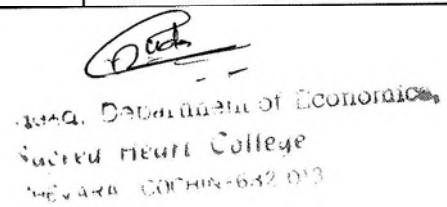 Department of Economics,
Sacred Heart College
THEVARA COCHIN-682 013